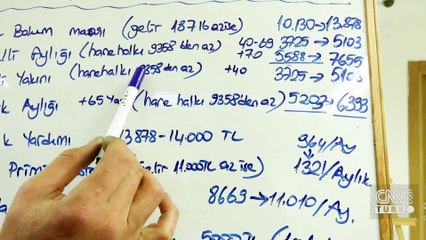 Bakım maaşı (gelir 18716 az ise) 10.130→13.878
Aylığı (hane halkı 9358'den az) 40-69 3725→5103
+70 5588→7655
Yakını (hane halkı 9358'den az) +40 3725→5103
Aylığı +65 Yaş (hane halkı 9358'den az) 5209→6393
Yardımı 13.878-14.000 TL 964/Ay
1321/Aylık
Prim (11.000TL az ise)
8669→11.010/Ay.
CNN
TÜRK